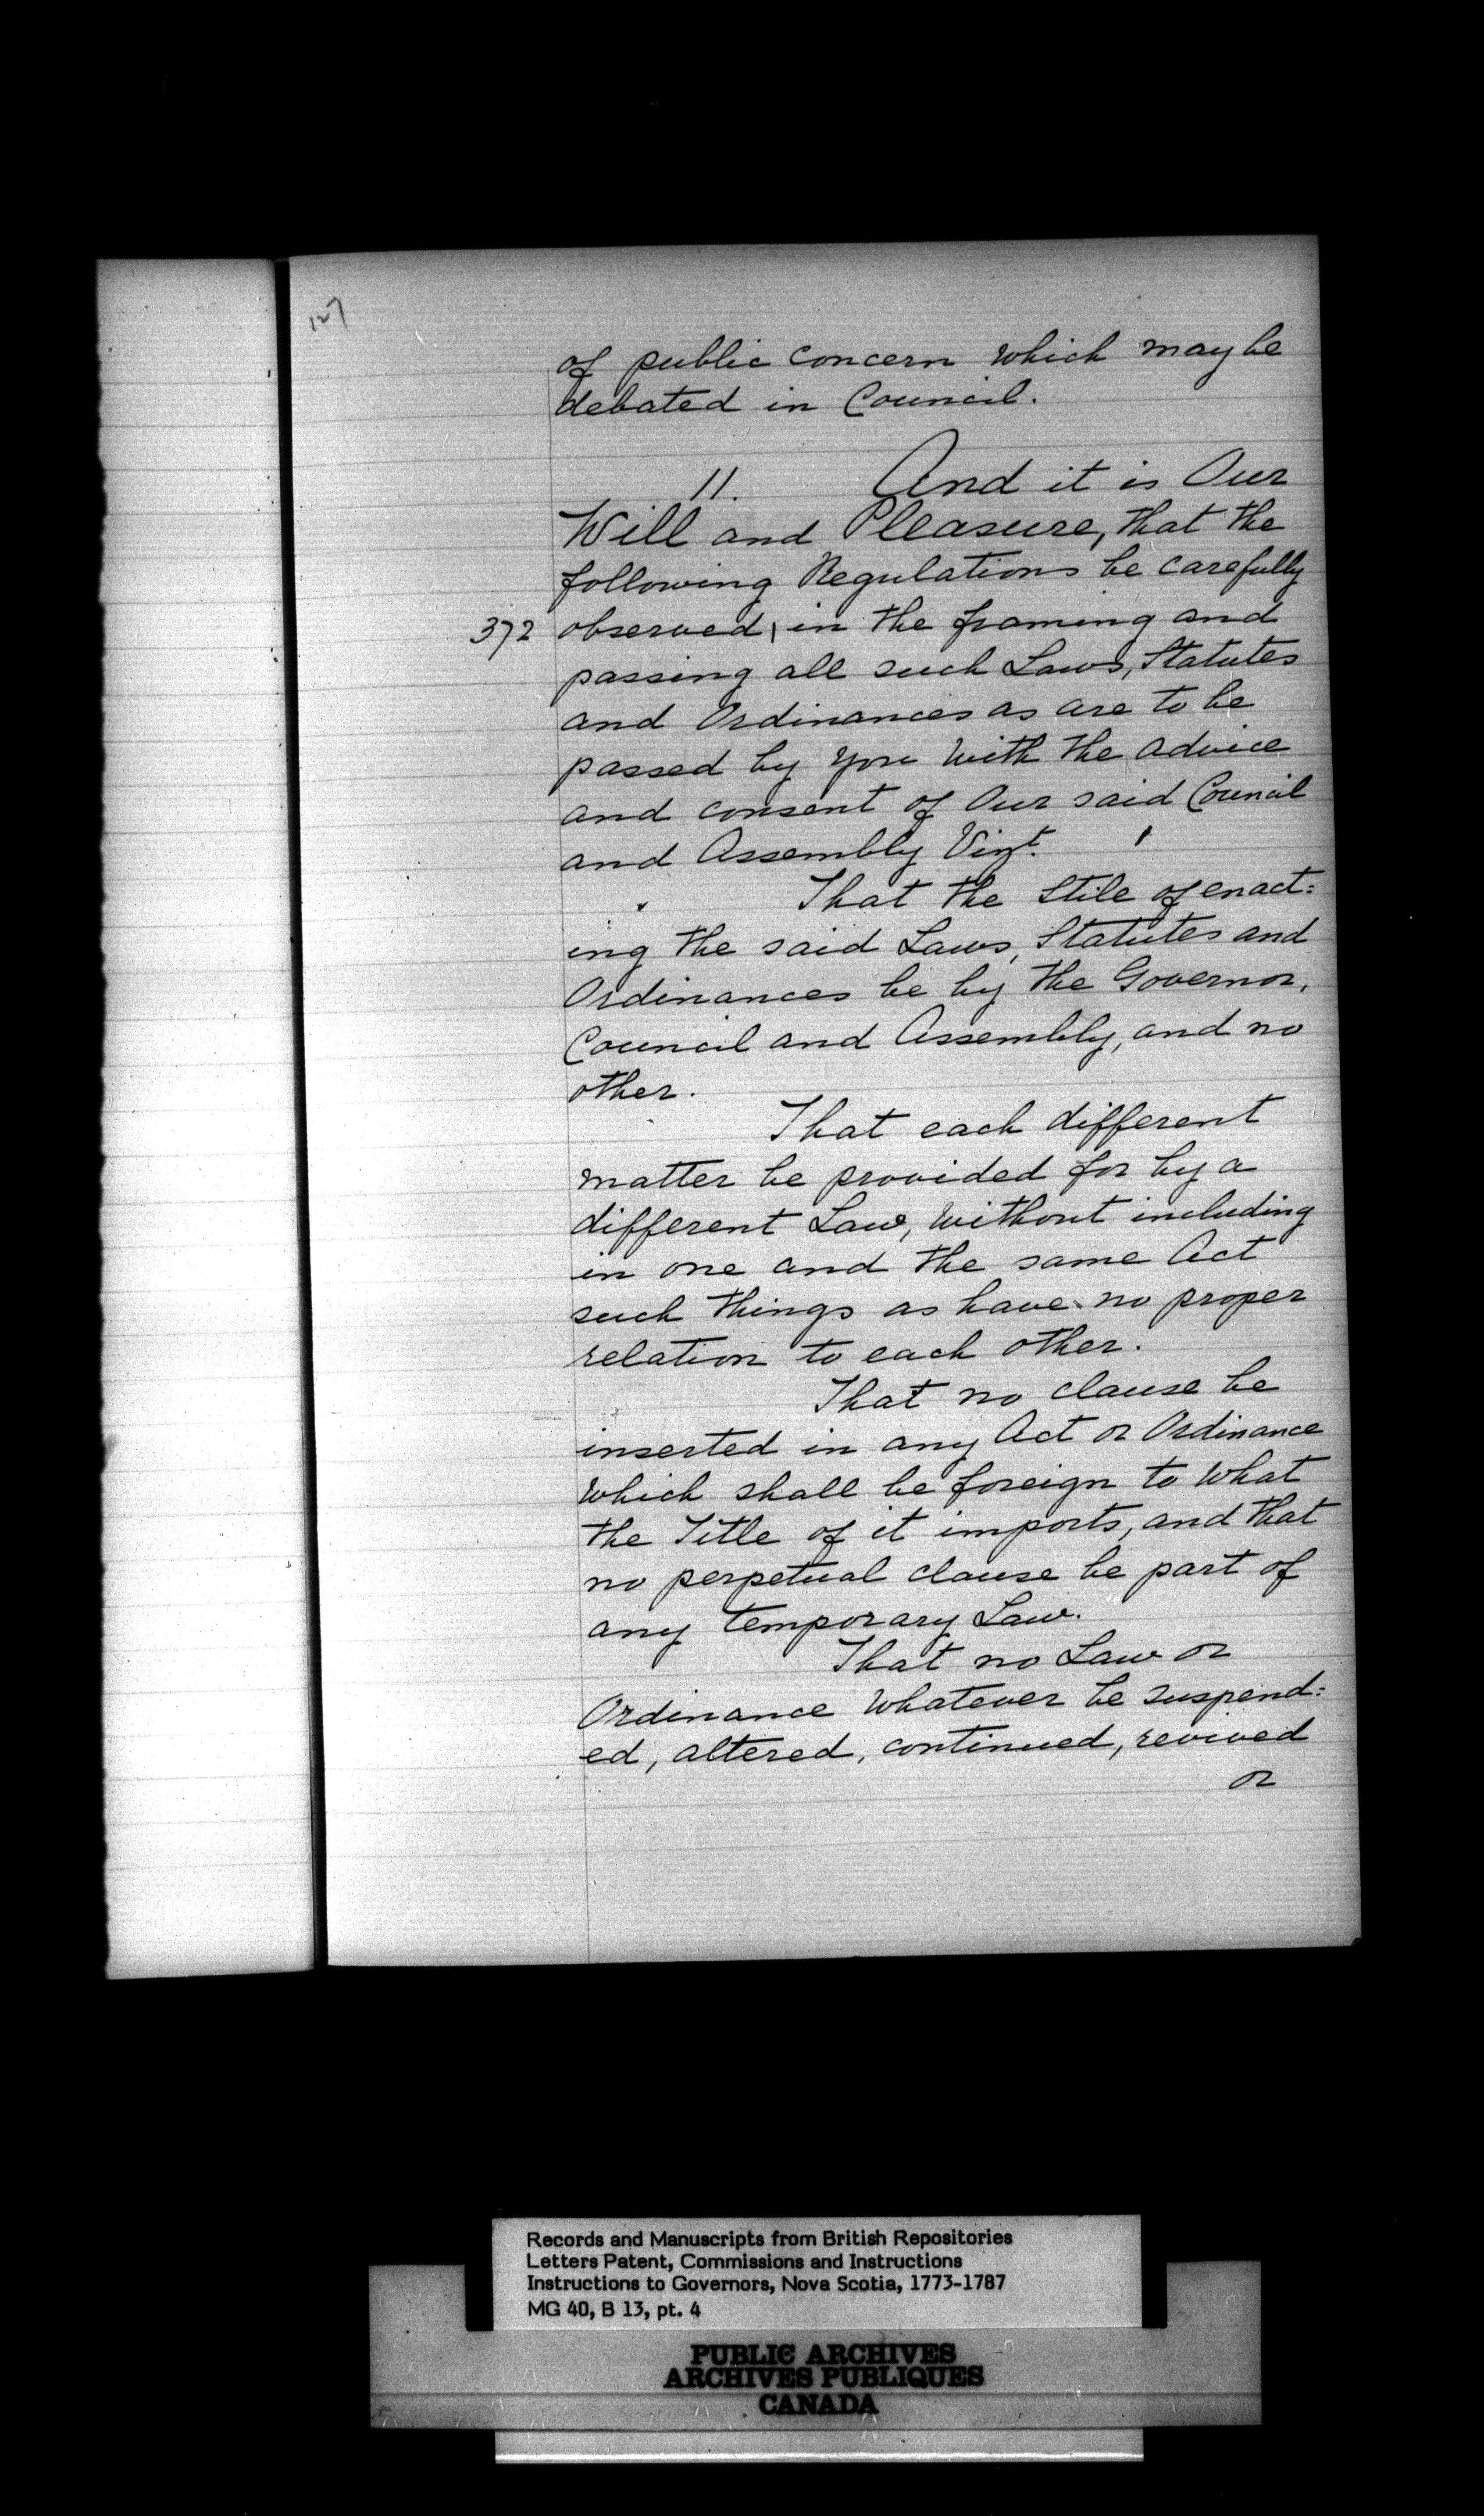 127
of public concern which may be
debated in Council.
11. And it is Our
Will and Pleasure, that the
following Regulations be carefully
372 observed, in the framing and
passing all such Laws, Statutes
and Ordinances as are to be
passed by you with the advice
and consent of Our said Council
and Assembly Vizt.
That the Stile of enact=
ing the said Laws, Statutes and
Ordinances be by the Governor,
Council and Assembly, and no
other.
That each different
matter be provided for by a
different Law, without including
in one and the same Act
such things as have no proper
relation to each other.
That no clause be
inserted in any Act or Ordinance
which shall be foreign to what
the Title of it imports, and that
no perpetual clause be part of
any temporary Law.
That no Law or
Ordinance whatever be suspend=
ed, altered, continued, revived
or
Records and Manuscripts from British Repositories
Letters Patent, Commissions and Instructions
Instructions to Governors, Nova Scotia, 1773-1787
MG 40, B 13, pt. 4
PUBLIC ARCHIVES
ARCHIVES PUBLIQUES
CANADA